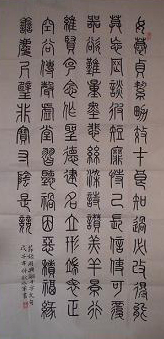 女慕貞絜男效才良知過必改得能
莫忘罔談彼短靡恃己長信使可覆
器欲難量墨悲絲染詩讚羔羊景行
維賢克念作聖德建名立形端表正
空谷傳聲虛堂習聽禍因惡積福緣
善慶尺璧非寶寸陰是競
節錄周興嗣千字文句
戊子年仲秋書